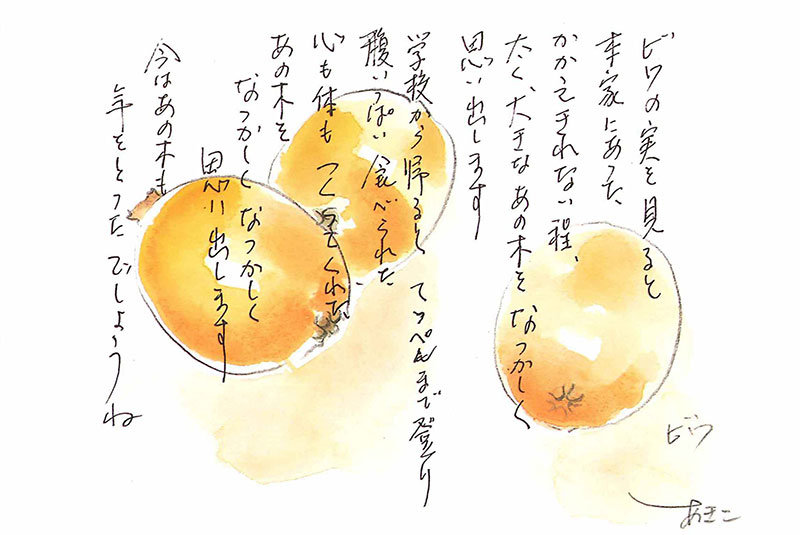 ビワの実を見ると
本家にあった
かかえきれない程、
太く大きなあの木をなつかしく
思い出します
学校から帰ると てっぺんまで登り
腹いっぱい食べられた
心も体も つくってくれた
あの木を
なつかしく なつかしく
思い出します
今はあの木も
年をとったでしょうね
ビワ
あきこ